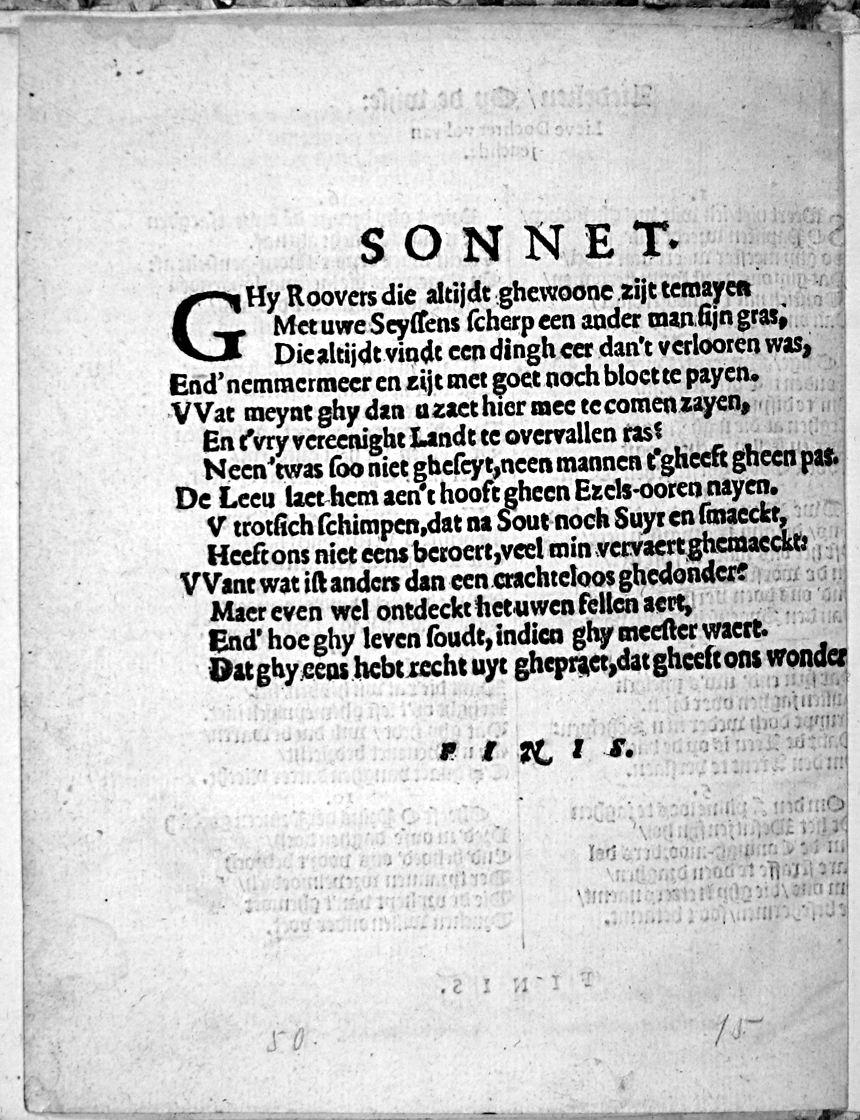 SONNET.
GHy Roovers die altijdt ghewoone zijt temayen
Met uwe Seyſſens ſcherp een ander man ſijn gras,
Die altijdt vindt een dingh eer dan't verlooren was,
End' nemmermeer en zijt met goet noch bloet te payen.
VVat meynt ghy dan u zaet hier mee te comen zayen,
En t'vry vereenight Landt te overvallen ras?
Neen 'twas ſoo niet gheſeyt, neen mannen t'gheeft gheen pas.
De Leeu laet hem aen't hooft gheen Ezels-ooren nayen.
V trotſich ſchimpen, dat na Sout noch Suyr en ſmaeckt,
Heeft ons niet eens beroert, veel min vervaert ghemaeckt:
VVant wat iſt anders dan een crachteloos ghedonder?
Maer even wel ontdeckt het uwen fellen aert,
End' hoe ghy leven ſoudt, indien ghy meeſter waert.
Dat ghy eens hebt recht uyt ghepraet, dat gheeft ons wonder
FINIS.
50.
15